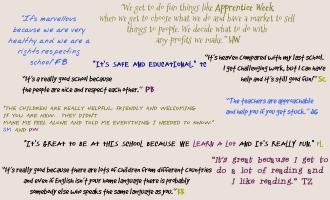 "It's marvellous
because we are very
healthy and we are a
rights respecting
school" FB
"We get to do fun things like Apprentice Week
when we get to choose what we do and have a market to sell
things to people. We decide what to do with
any profits we make." HW
"It's safe and educational." TC
"It's heaven compared with my last school.
I get challenging work, but I can have
help and it's still good fun!" Sc
"It's a really good school because
the people are nice and respect each other." PB
"The teachers are approachable
and help you if you get stuck." AG
"The children are really helpful, friendly and welcoming
if you are new. They didn't
make me feel alone and told me everything I needed to know."
SM and DW
"It's great to be at this school because we learn a lot and it's really fun." FL
"It's really good because there are lots of children from different countries
and even if English isn't your home language there is probably
somebody else who speaks the same language as you." EB
"It's great because I get to
do a lot of reading and
I like reading." TZ